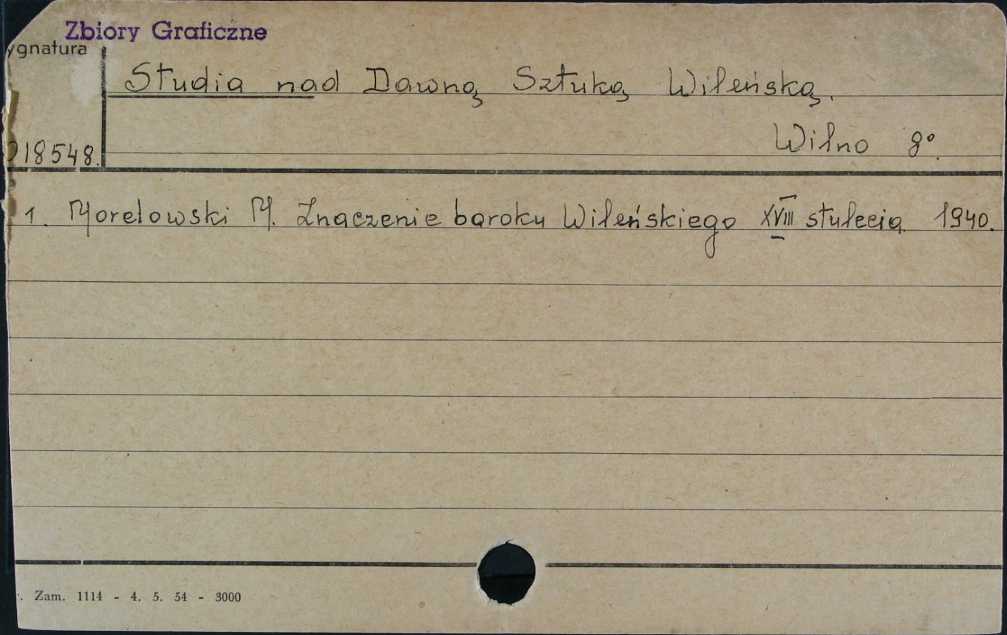 Zbiory Graficzne
ygnatura
Studia nad Dawną Sztuką Wileńską.
18548.
Wilno 8°.
1. Morelowski M. Znaczenie baroku Wileńskiego XVIII stulecia 1940.
Zam. 1114 - 4. 5. 54 - 3000